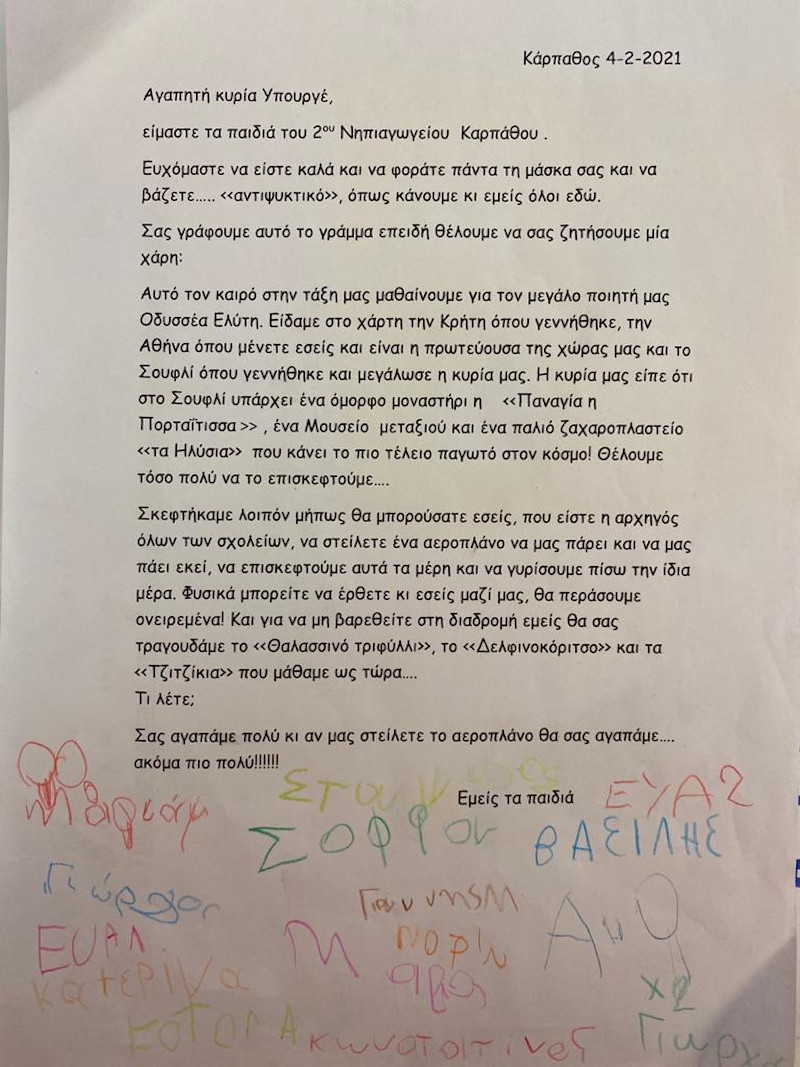 Κάρπαθος 4-2-2021
Αγαπητή κυρία Υπουργέ,
είμαστε τα παιδιά του 2ου Νηπιαγωγείου Καρπάθου .
Ευχόμαστε να είστε καλά και να φοράτε πάντα τη μάσκα σας και να
βάζετε..... <<αντιψυκτικό>>, όπως κάνουμε κι εμείς όλοι εδώ.
Σας γράφουμε αυτό το γράμμα επειδή θέλουμε να σας ζητήσουμε μία
χάρη:
Αυτό τον καιρό στην τάξη μας μαθαίνουμε για τον μεγάλο ποιητή μας
Οδυσσέα Ελύτη. Είδαμε στο χάρτη την Κρήτη όπου γεννήθηκε, την
Αθήνα όπου μένετε εσείς και είναι η πρωτεύουσα της χώρας μας και το
Σουφλί όπου γεννήθηκε και μεγάλωσε η κυρία μας. Η κυρία μας είπε ότι
στο Σουφλί υπάρχει ένα όμορφο μοναστήρι η <<Παναγία η
Πορταΐτισσα >> , ένα Μουσείο μεταξιού και ένα παλιό ζαχαροπλαστείο
<<τα Ηλύσια>> που κάνει το πιο τέλειο παγωτό στον κόσμο! Θέλουμε
τόσο πολύ να το επισκεφτούμε....
Σκεφτήκαμε λοιπόν μήπως θα μπορούσατε εσείς, που είστε η αρχηγός
όλων των σχολείων, να στείλετε ένα αεροπλάνο να μας πάρει και να μας
πάει εκεί, να επισκεφτούμε αυτά τα μέρη και να γυρίσουμε πίσω την ίδια
μέρα. Φυσικά μπορείτε να έρθετε κι εσείς μαζί μας, θα περάσουμε
ονειρεμένα! Και για να μη βαρεθείτε στη διαδρομή εμείς θα σας
τραγουδάμε το <<Θαλασσινό τριφύλλι>>, το <<Δελφινοκόριτσο>> και τα
<<Τζιτζίκια>> που μάθαμε ως τώρα....
Τι λέτε;
Σας αγαπάμε πολύ κι αν μας στείλετε το αεροπλάνο θα σας αγαπάμε....
ακόμα πιο πολύ!!!!!!
Εμείς τα παιδιά
ΒΑΣΙΛΗΣ
Γιώργος
κατεΡΙΝα